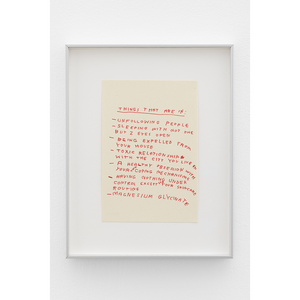 THINGS THAT ARE IF:
- UNFOLLOWING PEOPLE
- SLEEPING WITH NOT ONE
BUT 2 EYES OPEN
- BEING EXPELLED FROM
YOUR HOUSE
- TOXIC RELATIONSHIP
WITH THE CITY YOU LIVE IN
- A HEALTHY OBSESSION WITH
YOUR COPING MECHANISMS
- HAVING NOTHING UNDER
CONTROL EXCEPT YOUR SKINCARE
ROUTINE
- MAGNESIUM GLYCINATE